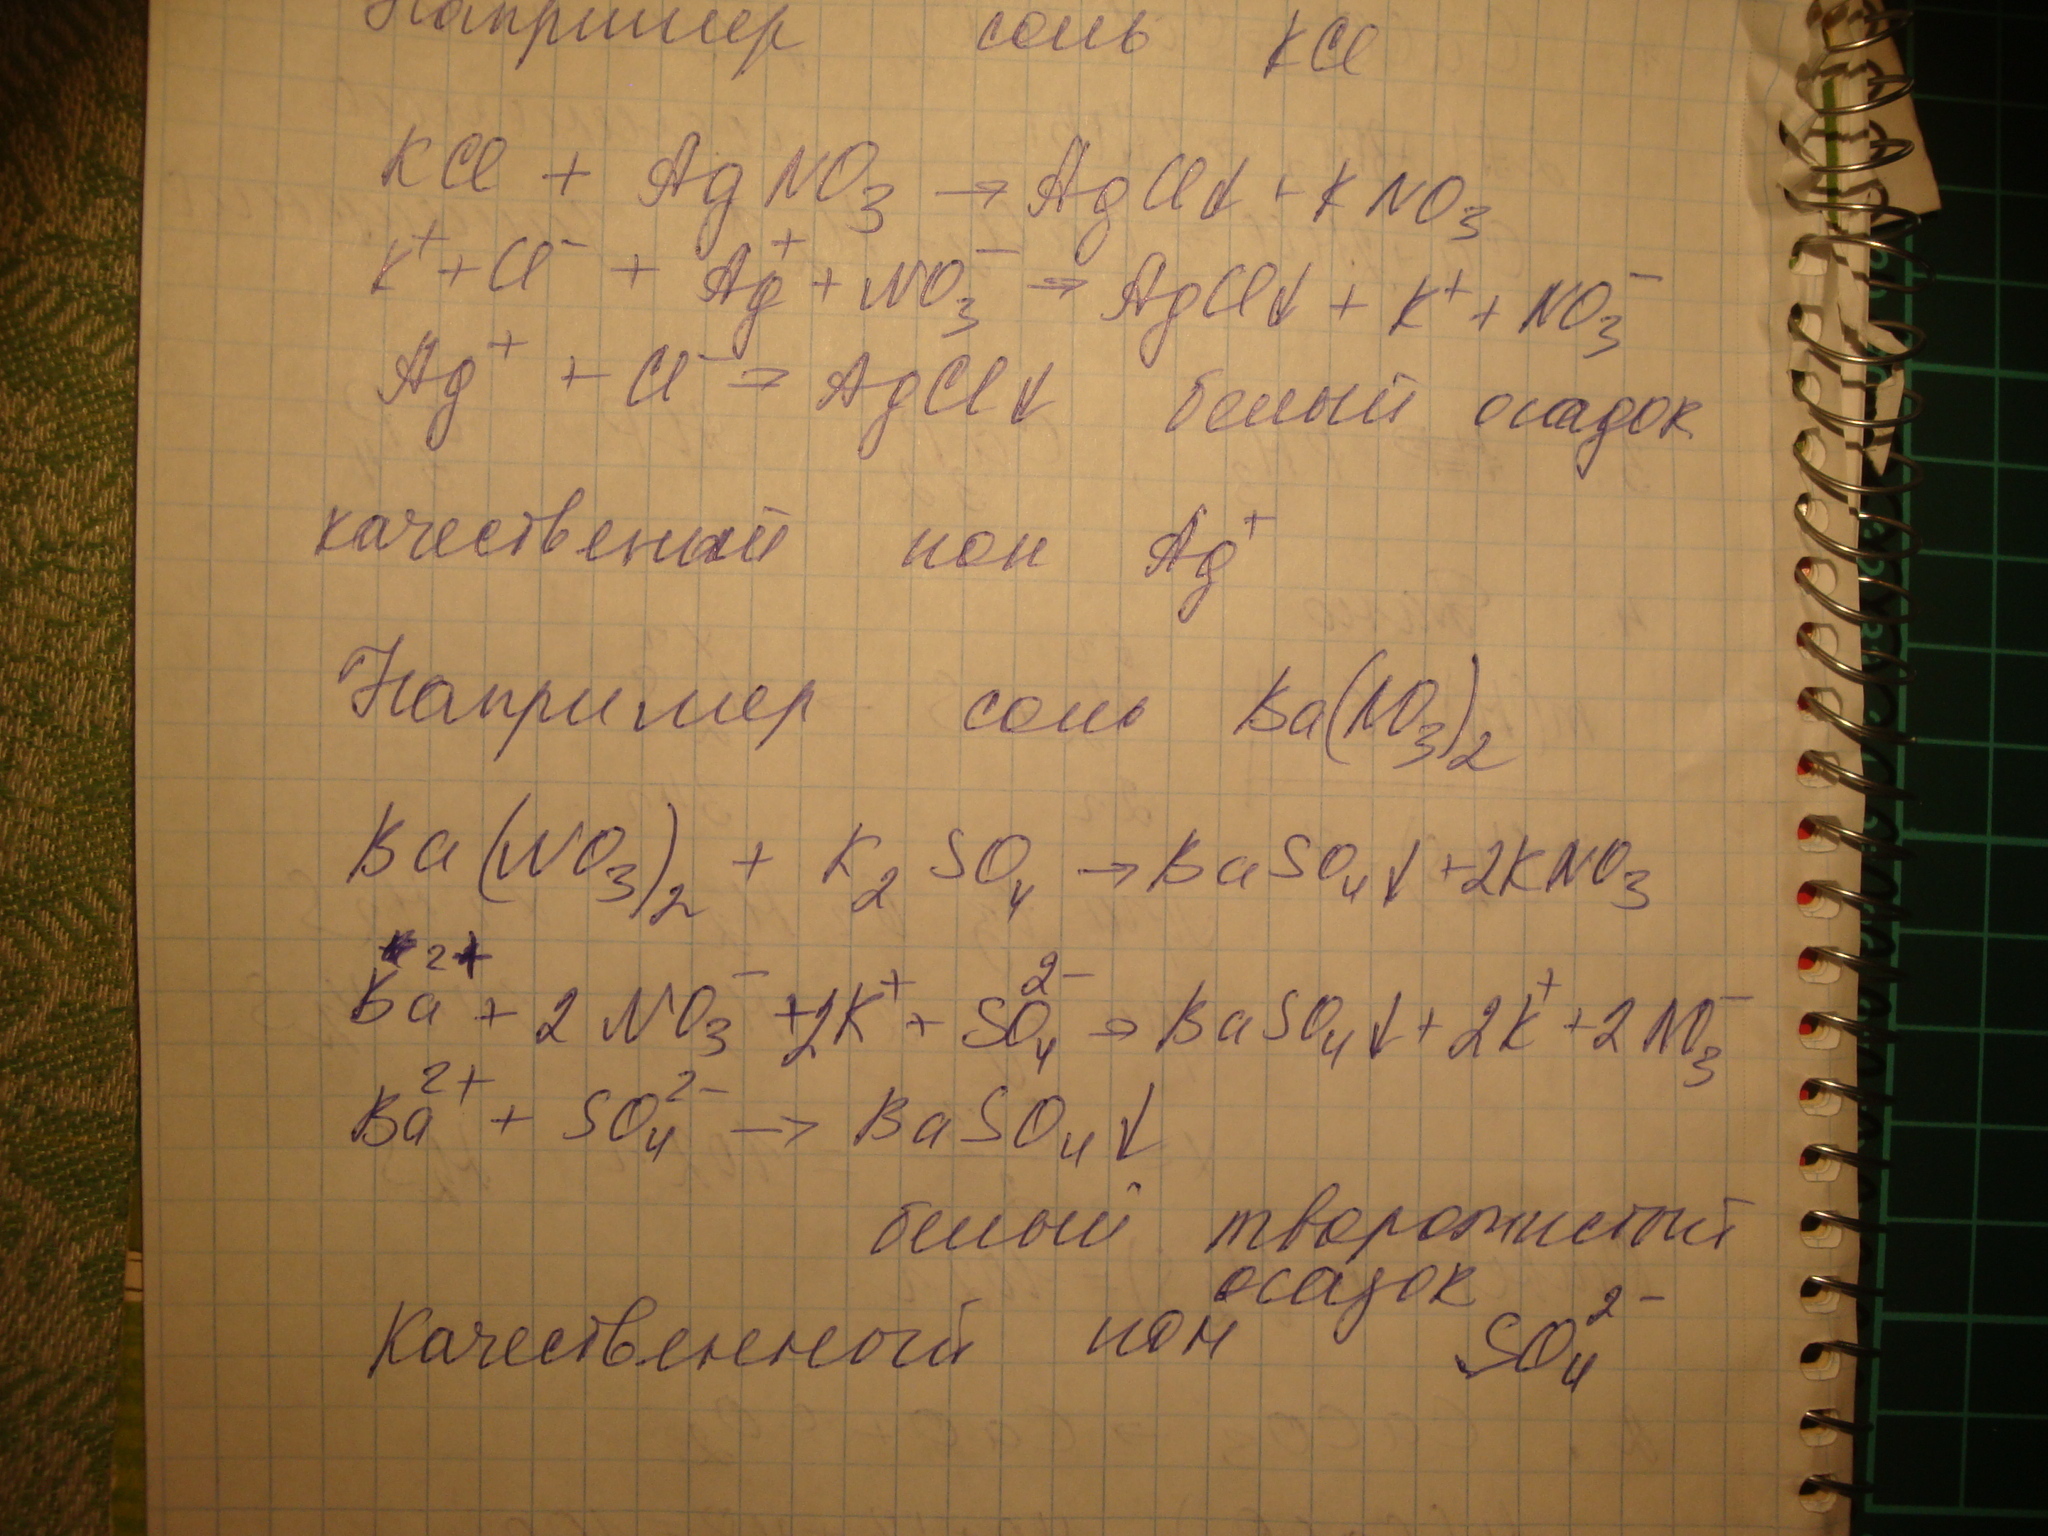 Например соль KCl
KCl + AgNO₃ → AgCl↓ + KNO₃
K⁺ + Cl⁻ + Ag⁺ + NO₃⁻ → AgCl↓ + K⁺ + NO₃⁻
Ag⁺ + Cl⁻ → AgCl↓ белый осадок
качественный ион Ag⁺
Например соль Ba(NO₃)₂
Ba(NO₃)₂ + K₂SO₄ → BaSO₄↓ + 2KNO₃
Ba²⁺ + 2NO₃⁻ + 2K⁺ + SO₄²⁻ → BaSO₄↓ + 2K⁺ + 2NO₃⁻
Ba²⁺ + SO₄²⁻ → BaSO₄↓
белый творожистый
осадок
Качественный ион SO₄²⁻